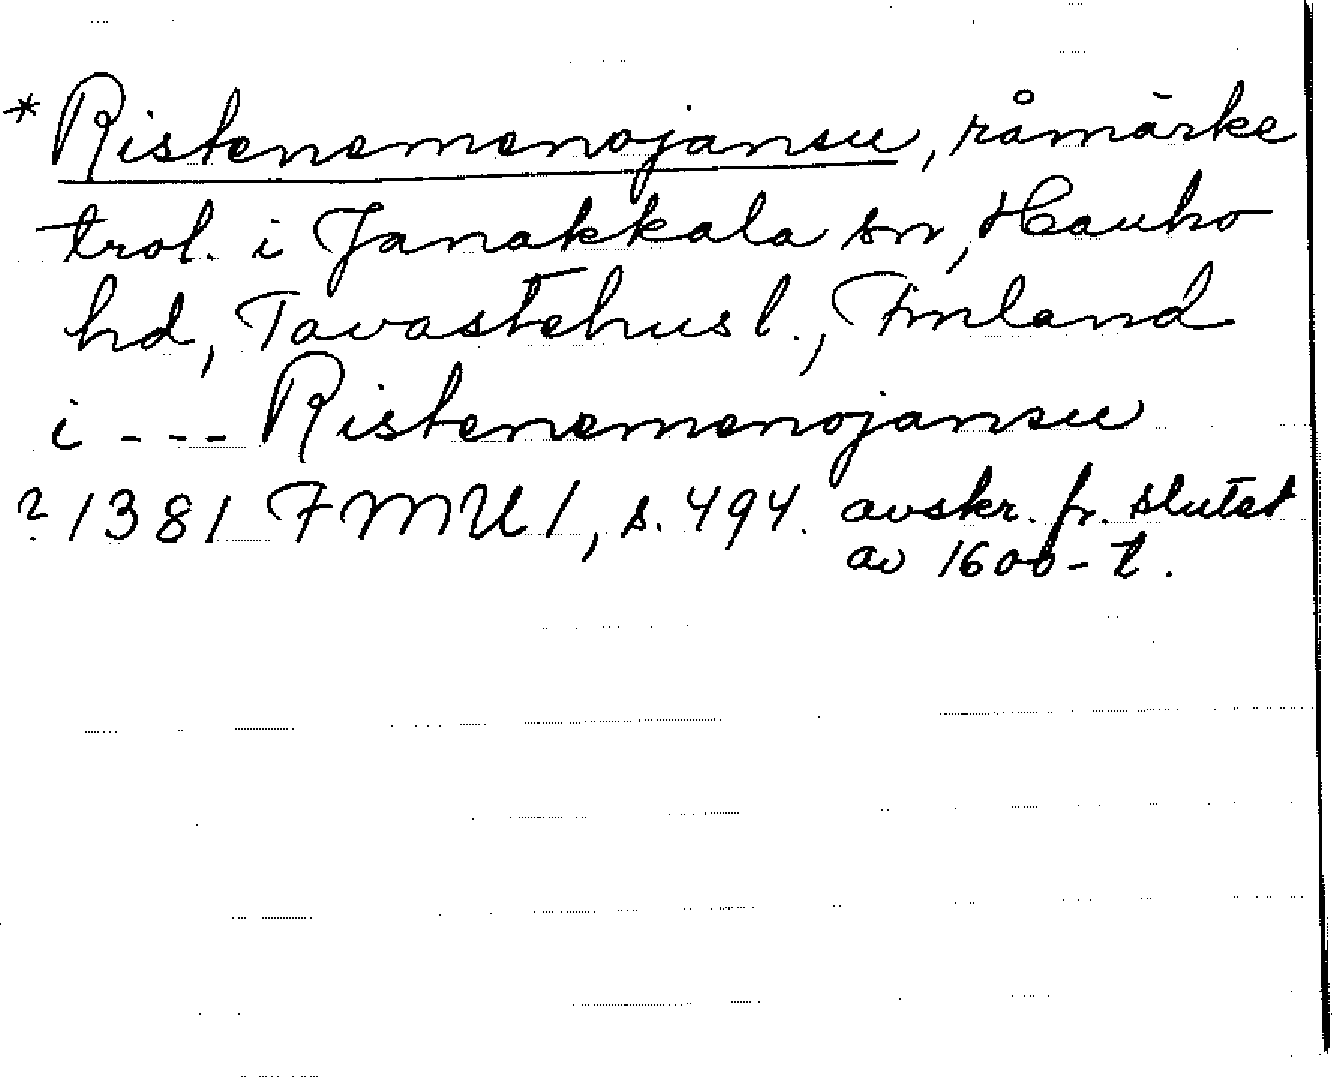 * Ristenemenojansuu, råmärke
trol. i Janakkala sn, Hauho
hd, Tavastehus l., Finland
i --- Ristenemenojansuu
? 1381 FMU 1, s. 494. avskr. fr. slutet
av 1600-t.